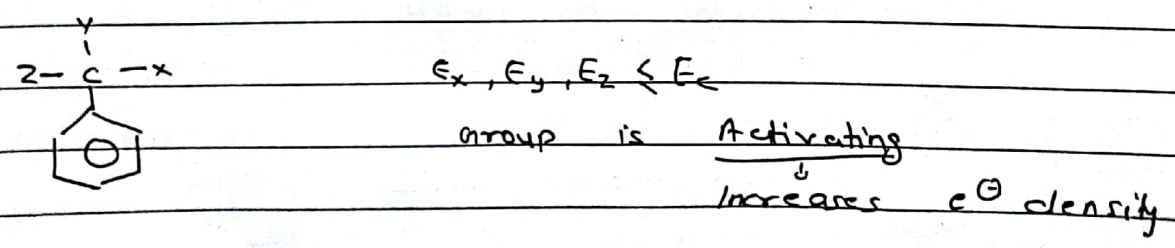 Y
Z - C - X
Ex, Ey, Ez < Ec
Group is Activating
↓
Increases e⊖ density